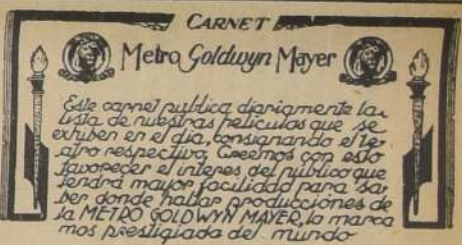 CARNET
Metro Goldwyn Mayer
Este carnet publica diariamente la
lista de nuestras películas que se
exhiben en el día, consignando el te-
atro respectivo. Creemos con esto
favorecer el interes del público que
tendrá mayor facilidad para sa-
ber donde hallar producciónes de
la METRO GOLDWYN MAYER, la marca
mas prestigiada del mundo